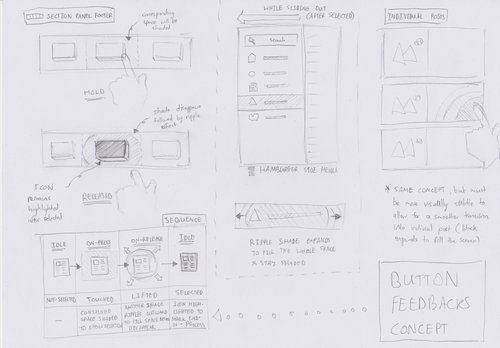 SECTION PANEL FOOTER
corresponding
space will be
shaded
HOLD
shade disappears
followed by ripple
effect
ICON
remains
highlighted
when selected
RELEASED
SEQUENCE
IDLE
ON-PRESS
ON-RELEASE
IDLE
NOT-SELECTED
TOUCHED
LIFTED
SELECTED
CONTAINED
SPACE SHADED
ANOTHER SHADE
RIPPLES OUTWARD
TO FILL SPACE
ICON HIGH-
LIGHTED TO
WHILE SLIDING OUT
(AFTER SELECTED)
Search
HAMBURGER SIDE MENU
RIPPLE SHADE EXPANDS
TO FILL THE WHOLE SPACE
& STAY SHADED
INDIVIDUAL POSTS
* SAME CONCEPT, but must
be more visually visible to
allow for a smoother transition
into individual post (block
expands to fill the screen)
BUTTON
FEEDBACKS
CONCEPT